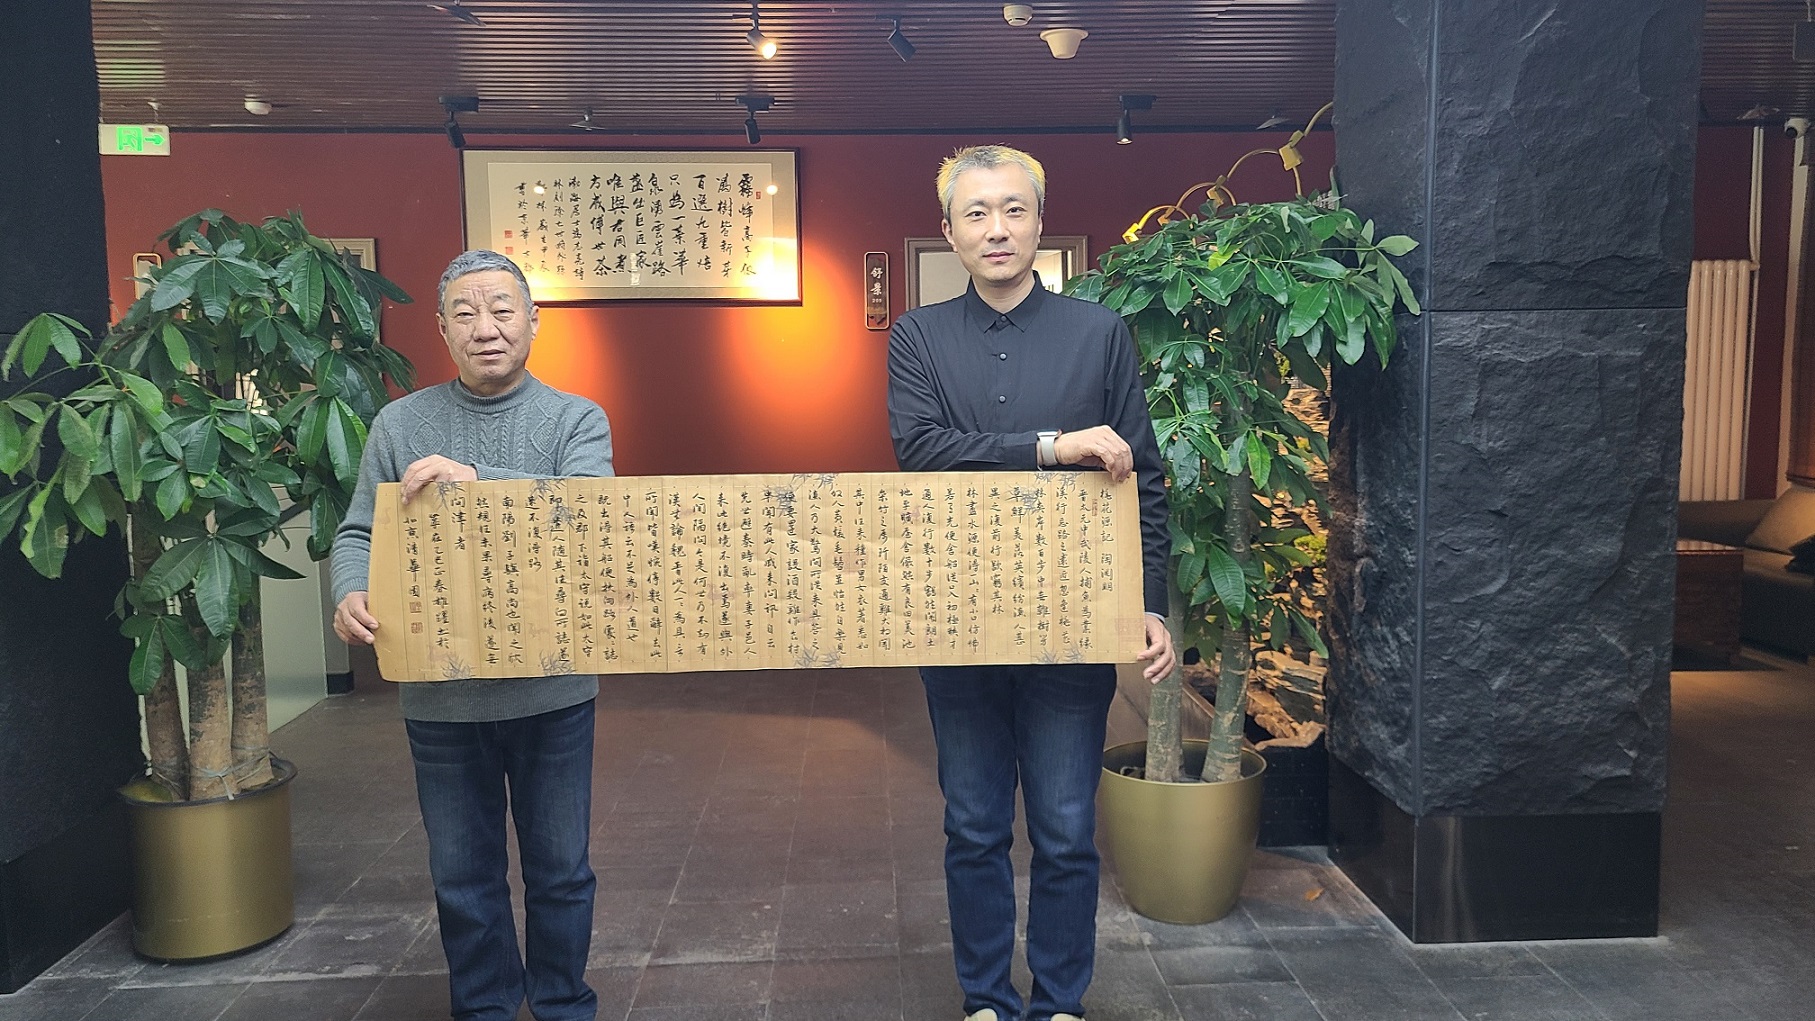 滿樹皆新芽
百選九重焙
只為一葉華
泉湧雲崖路
蓋出巨匠家
唯與君同煮
方成傳世茶
舒景
桃花源記 陶淵明
晉太元中武陵人捕魚為業緣
溪行忘路之遠近忽逢桃花
林夾岸數百步中無雜樹芳
草鮮美落英繽紛漁人甚
異之復前行欲窮其林
林盡水源便得一山山有小口仿佛
若有光便舍船從口入初極狹才
通人復行數十步豁然開朗土
地平曠屋舍儼然有良田美池
桑竹之屬阡陌交通雞犬相聞
其中往來種作男女衣著悉如
外人黃髮垂髫並怡然自樂見
漁人乃大驚問所從來具答之
便要還家設酒殺雞作食村
中聞有此人咸來問訊自云
先世避秦時亂率妻子邑人
來此絕境不復出焉遂與外
人間隔問今是何世乃不知有
漢無論魏晉此人一一為具言
所聞皆嘆惋停數日辭去此
中人語云不足為外人道也
既出得其船便扶向路處處誌
之及郡下詣太守說如此太守
即遣人隨其往尋向所誌遂
迷不復得路
南陽劉子驥高尚也聞之欣
然規往未果尋病終後遂無
問津者
歲在乙巳春雄謹書於
清華園